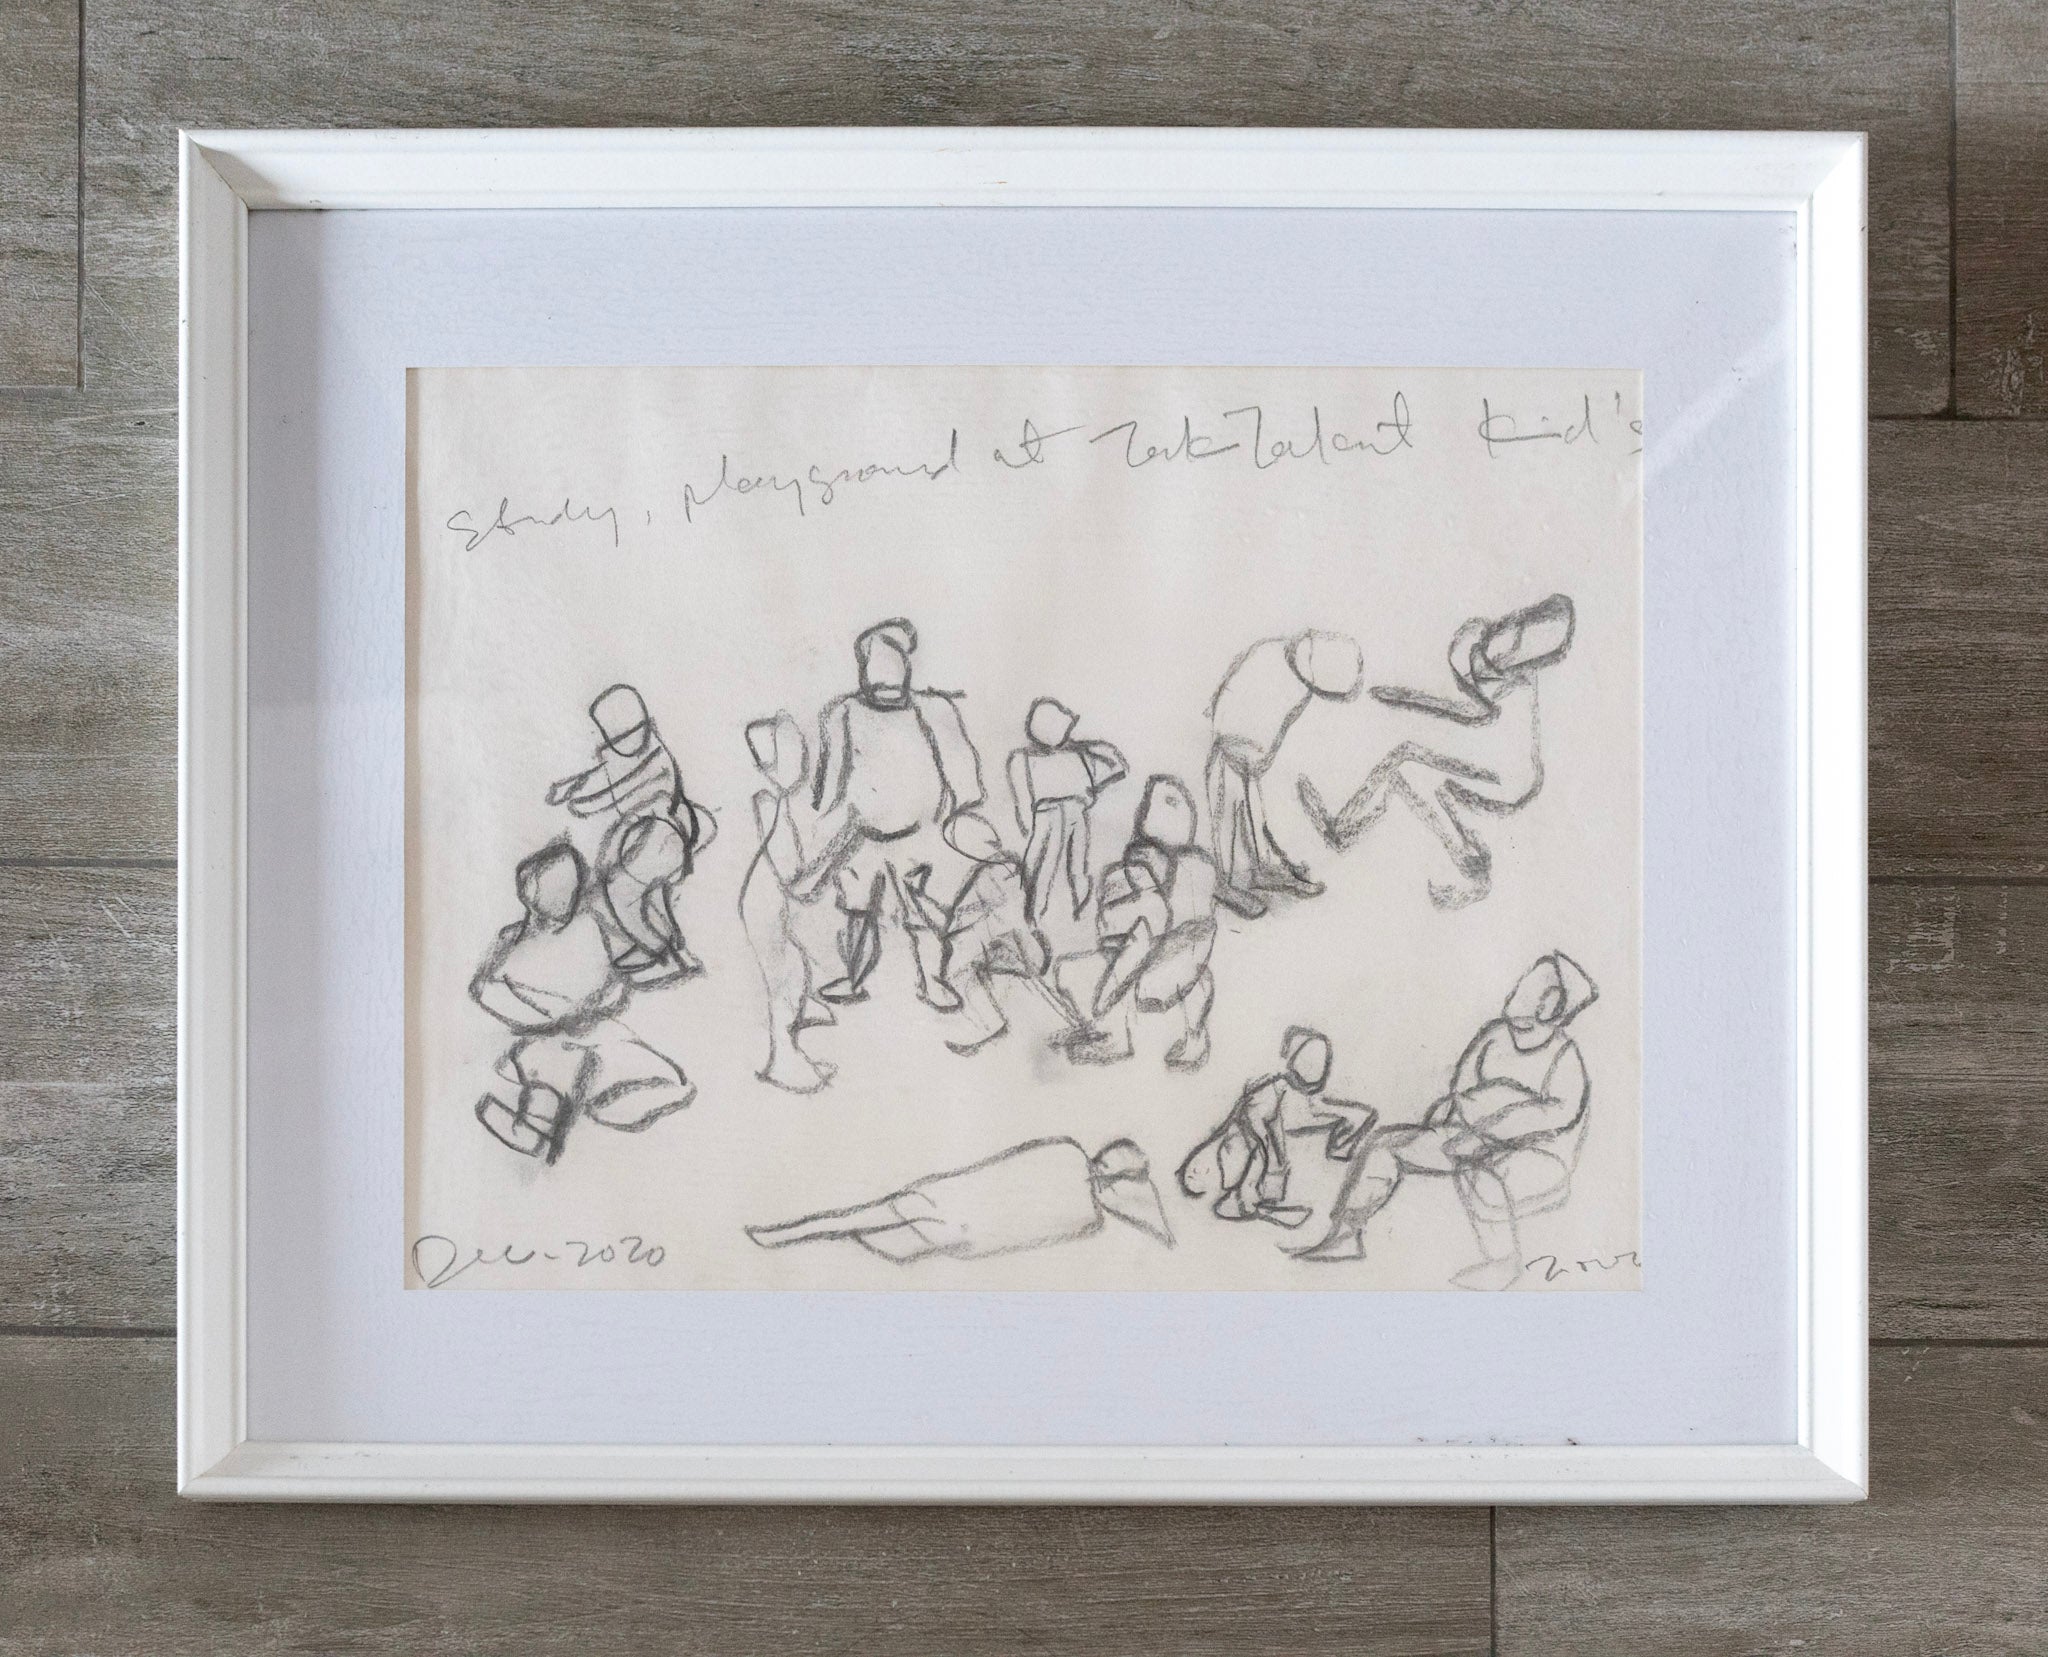 study, playground at TalkTalent Kid's
Dec-2020